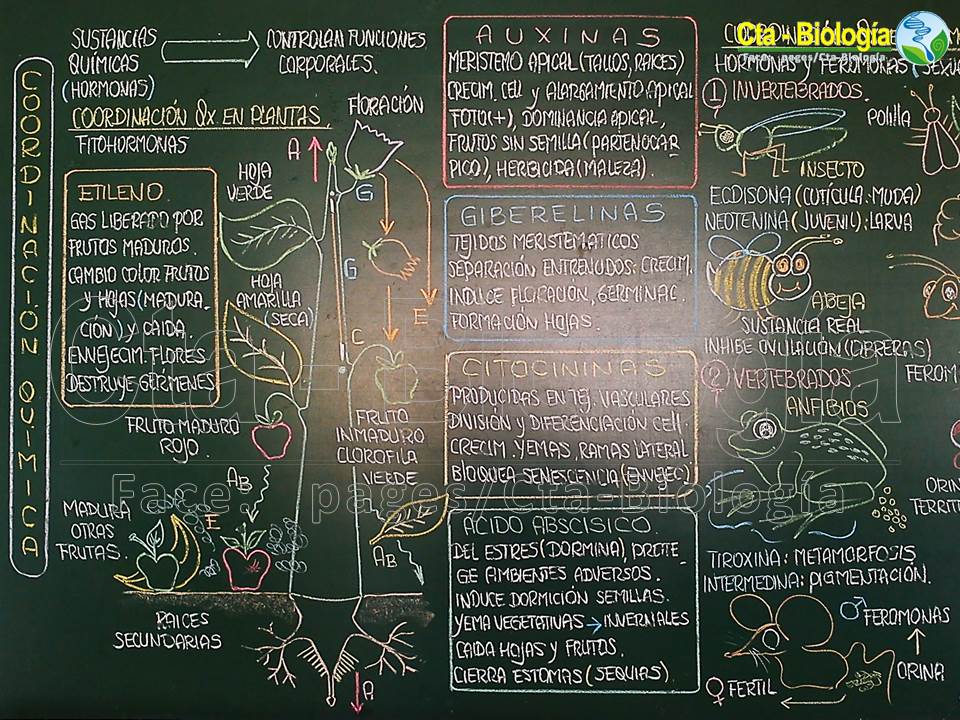 COORDINACIÓN QUÍMICA
SUSTANCIAS
QUÍMICAS
(HORMONAS)
CONTROLAN FUNCIONES
CORPORALES.
COORDINACIÓN Qx EN PLANTAS
FITOHORMONAS
ETILENO.
GAS LIBERADO POR
FRUTOS MADUROS.
CAMBIO COLOR FRUTOS
Y HOJAS (MADURA
CIÓN) Y CAIDA.
ENVEJECIM. FLORES
DESTRUYE GÉRMENES
FLORACIÓN
A
HOJA
VERDE
G
G
E
C
HOJA
AMARILLA
(SECA)
FRUTO MADURO
ROJO.
FRUTO
INMADURO
CLOROFILA
VERDE
AB
MADURA
OTRAS
FRUTAS.
E
AB
RAICES
SECUNDARIAS
A
AUXINAS
MERISTEMO APICAL (TALLOS, RAICES)
CRECIM. CELL Y ALARGAMIENTO APICAL
FOTO(+), DOMINANCIA APICAL,
FRUTOS SIN SEMILLA (PARTENOCAR
PICO), HERBICIDA (MALEZA).
GIBERELINAS
TEJIDOS MERISTEMATICOS
SEPARACIÓN ENTRENUDOS: CRECIM.
INDUCE FLORACIÓN, GERMINAC.
FORMACIÓN HOJAS.
CITOCININAS
PRODUCIDAS EN TEJ. VASCULARES
DIVISIÓN Y DIFERENCIACIÓN CELL.
CRECIM. YEMAS, RAMAS LATERAL
BLOQUEA SENESCENCIA (ENVEJEC)
ÁCIDO ABSCISICO.
DEL ESTRES (DORMINA), PROTE
GE AMBIENTES ADVERSOS.
INDUCE DORMICIÓN SEMILLAS.
YEMA VEGETATIVAS → INVERNALES
CAIDA HOJAS Y FRUTOS.
CIERRA ESTOMAS (SEQUIAS).
Cta - Biología
Face - pages/Cta-Biología
HORMONAS Y FEROMONAS (SEXUA
1 INVERTEBRADOS.
POLILLA
INSECTO
ECDISONA (CUTÍCULA: MUDA)
NEOTENINA (JUVENIL): LARVA
ABEJA
SUSTANCIA REAL
INHIBE OVULACIÓN (OBRERAS)
FEROM
2 VERTEBRADOS.
ANFIBIOS
ORIN
TERRIT
TIROXINA: METAMORFOSIS
INTERMEDINA: PIGMENTACIÓN.
♂ FEROMONAS
ORINA
♀ FERTIL
Cta-Biología
Face - pages/Cta-Biología